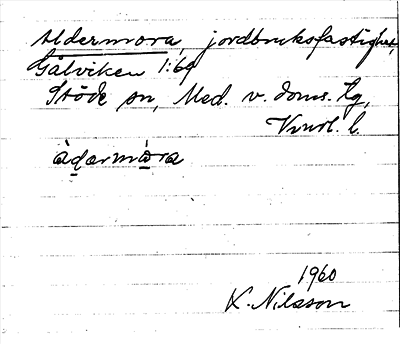 Aldermora, jordbruksfastighet,
Gålviken 1:69
Stöde sn, Med. v. doms. tg,
l.
àdarmòra
1960
K. Nilsson